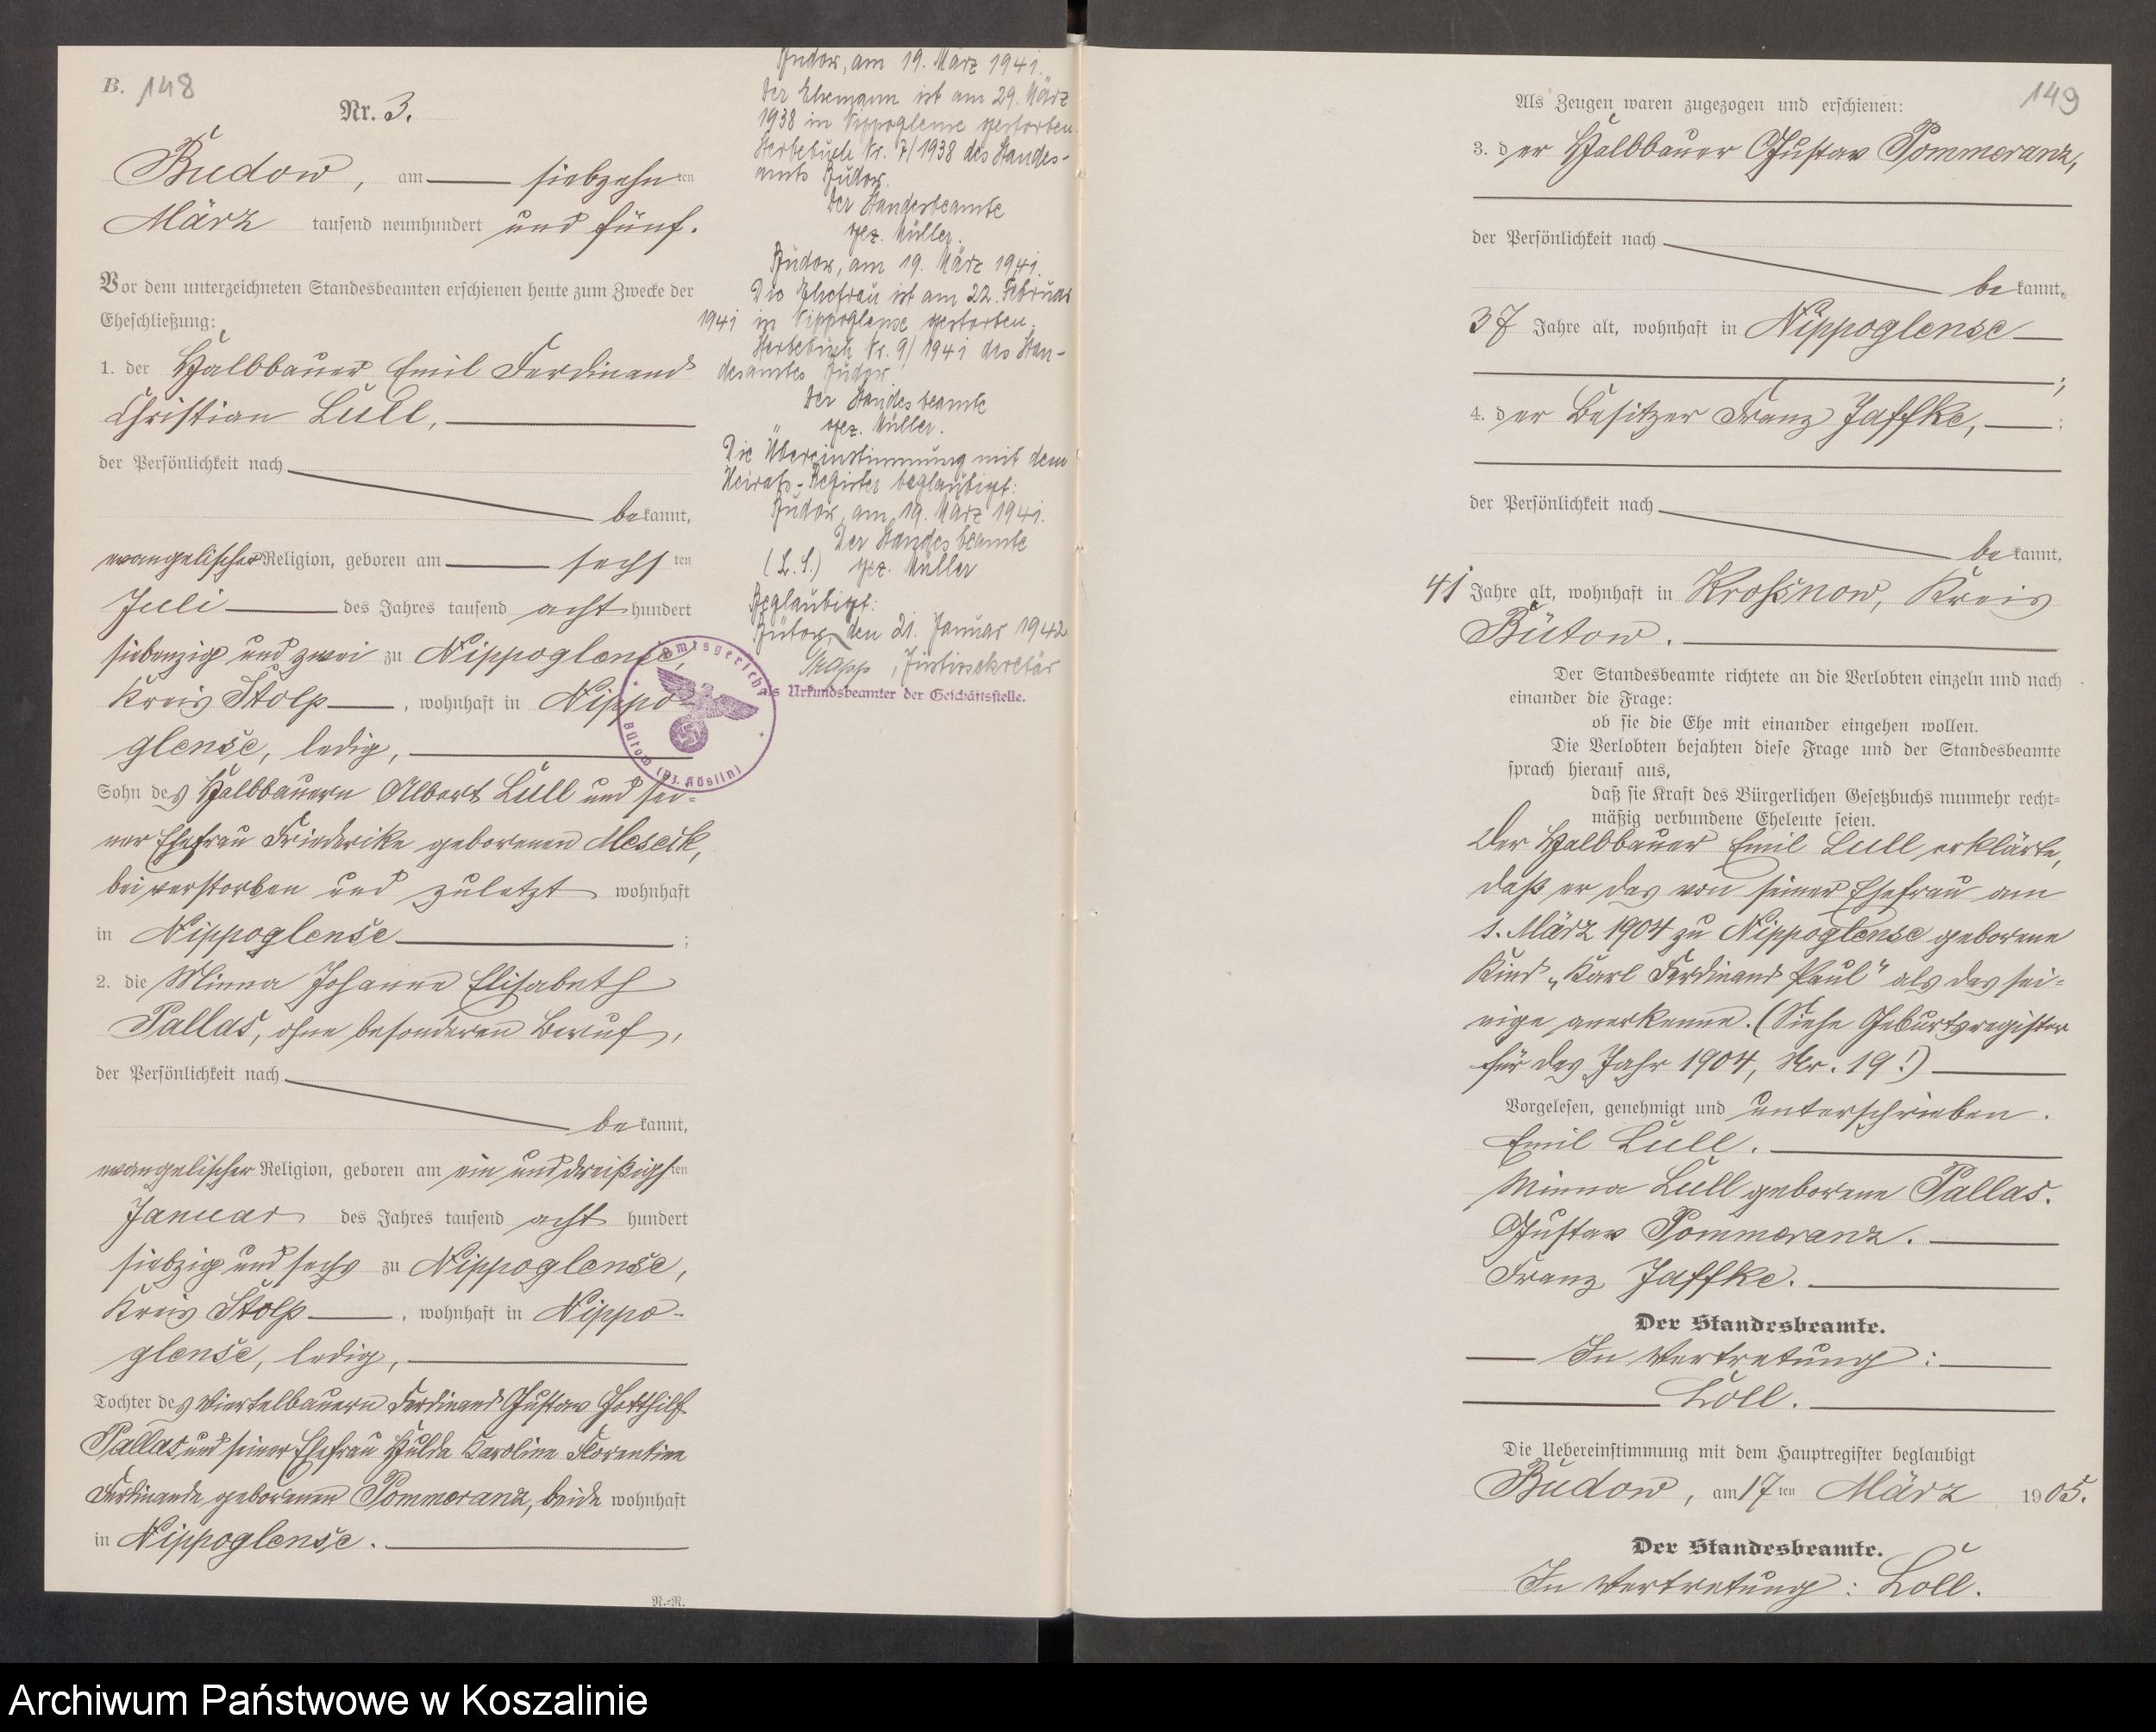 B. 148
Nr. 3.
Budow, am siebzehnten
März tausend neunhundert und fünf.
Vor dem unterzeichneten Standesbeamten erschienen heute zum Zwecke der
Eheschließung:
1. der Halbbauer Emil Ferdinand
Christian Lull,
der Persönlichkeit nach
bekannt,
evangelischer Religion, geboren am sechsten
Juli des Jahres tausend acht hundert
siebenzig und zwei zu Nippoglense,
Kreis Stolp, wohnhaft in Nippo-
glense, ledig,
Sohn des Halbbauern Albert Lull und sei-
ner Ehefrau Friederike geborenen Meseck,
bei verstorben und zuletzt wohnhaft
in Nippoglense;
2. die Minna Johanne Elisabeth
Pallas, ohne besonderen Beruf,
der Persönlichkeit nach
bekannt,
evangelischer Religion, geboren am ein und dreißigsten
Januar des Jahres tausend acht hundert
siebzig und sechs zu Nippoglense,
Kreis Stolp, wohnhaft in Nippo-
glense, ledig,
Tochter des Viertelbauern Ferdinand Gustav Gotthilf
Pallas und seiner Ehefrau Hulda Karoline Florentine
Ferdinande geborenen Pommeranz, beide wohnhaft
in Nippoglense.
R.-R.
Budow, am 19. März 1941.
Der Ehemann ist am 29. März
1938 in Nippoglense gestorben.
Sterbebuch Nr. 7/1938 des Standes-
amts Budow.
Der Standesbeamte
gez. Müller.
Budow, am 19. März 1941.
Die Ehefrau ist am 22. Februar
1941 in Nippoglense gestorben.
Sterbebuch Nr. 9/1941 des Stan-
desamtes Budow.
Der Standesbeamte
gez. Müller.
Die Übereinstimmung mit dem
Heirats-Register beglaubigt:
Budow, am 19. März 1941.
Der Standesbeamte
(L.S.) gez. Müller
Beglaubigt:
Bütow, den 21. Januar 1942
, Justizsekretär
als Urkundsbeamter der Geschäftsstelle.
Amtsgericht
Bütow (Bz. Köslin)
149
Als Zeugen waren zugezogen und erschienen:
3. der Halbbauer Gustav Pommeranz,
der Persönlichkeit nach
bekannt,
37 Jahre alt, wohnhaft in Nippoglense
;
4. der Besitzer Franz Jaffke, ;
der Persönlichkeit nach
bekannt,
41 Jahre alt, wohnhaft in Kroßnow, Kreis
Bütow.
Der Standesbeamte richtete an die Verlobten einzeln und nach
einander die Frage:
ob sie die Ehe mit einander eingehen wollen.
Die Verlobten bejahten diese Frage und der Standesbeamte
sprach hierauf aus,
daß sie Kraft des Bürgerlichen Gesetzbuchs nunmehr recht-
mäßig verbundene Eheleute seien.
Der Halbbauer Emil Lull erklärte,
daß er das von seiner Ehefrau am
1. März 1904 zu Nippoglense geborene
Kind „Karl Ferdinand Paul“ als das sei-
nige anerkenne. (Siehe Geburtsregister
für das Jahr 1904, Nr. 19!)
Vorgelesen, genehmigt und unterschrieben.
Emil Lull.
Minna Lull geborene Pallas.
Gustav Pommeranz.
Franz Jaffke.
Der Standesbeamte.
In Vertretung:
Loll.
Die Uebereinstimmung mit dem Hauptregister beglaubigt
Budow, am 17ten März 1905.
Der Standesbeamte.
In Vertretung: Loll.
Archiwum Państwowe w Koszalinie